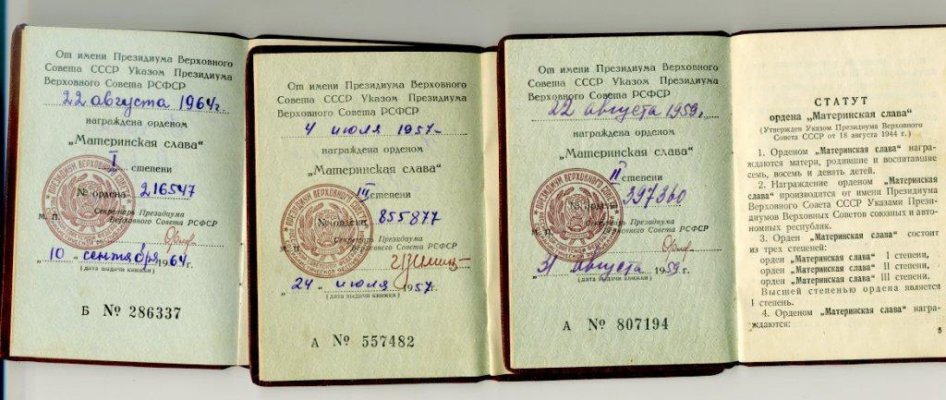 От имени Президиума Верховного
Совета СССР Указом Президиума
Верховного Совета РСФСР
22 августа 1964 г.
награждена орденом
„Материнская слава"
I степени
№ ордена 216547
М. П.
Секретарь Президиума
Верховного Совета РСФСР
„10" сентября 1964 г.
(дата выдачи книжки)
Б № 286337
От имени Президиума Верховного
Совета СССР Указом Президиума
Верховного Совета РСФСР
4 июля 1957
награждена орденом
„Материнская слава"
III степени
№ ордена 855877
М. П.
Секретарь Президиума
Верховного Совета РСФСР
„24" июля 1957 г.
(дата выдачи книжки)
А № 557482
От имени Президиума Верховного
Совета СССР Указом Президиума
Верховного Совета РСФСР
22 августа 1959 г.
награждена орденом
„Материнская слава"
II степени
№ ордена 397360
М. П.
Секретарь Президиума
Верховного Совета РСФСР
„31" августа 1959 г.
(дата выдачи книжки)
А № 807194
СТАТУТ
ордена „Материнская слава"
(Утвержден Указом Президиума Верховного
Совета СССР от 18 августа 1944 г.)
1. Орденом „Материнская слава" награ-
ждаются матери, родившие и воспитавшие
семь, восемь и девять детей.
2. Награждение орденом „Материнская
слава" производится от имени Президиума
Верховного Совета СССР Указами Прези-
диумов Верховных Советов союзных и авто-
номных республик.
3. Орден „Материнская слава" состоит
из трех степеней:
орден „Материнская слава" I степени,
орден „Материнская слава" II степени,
орден „Материнская слава" III степени.
Высшей степенью ордена является
I степень.
4. Орденом „Материнская слава" награ-
ждаются:
5